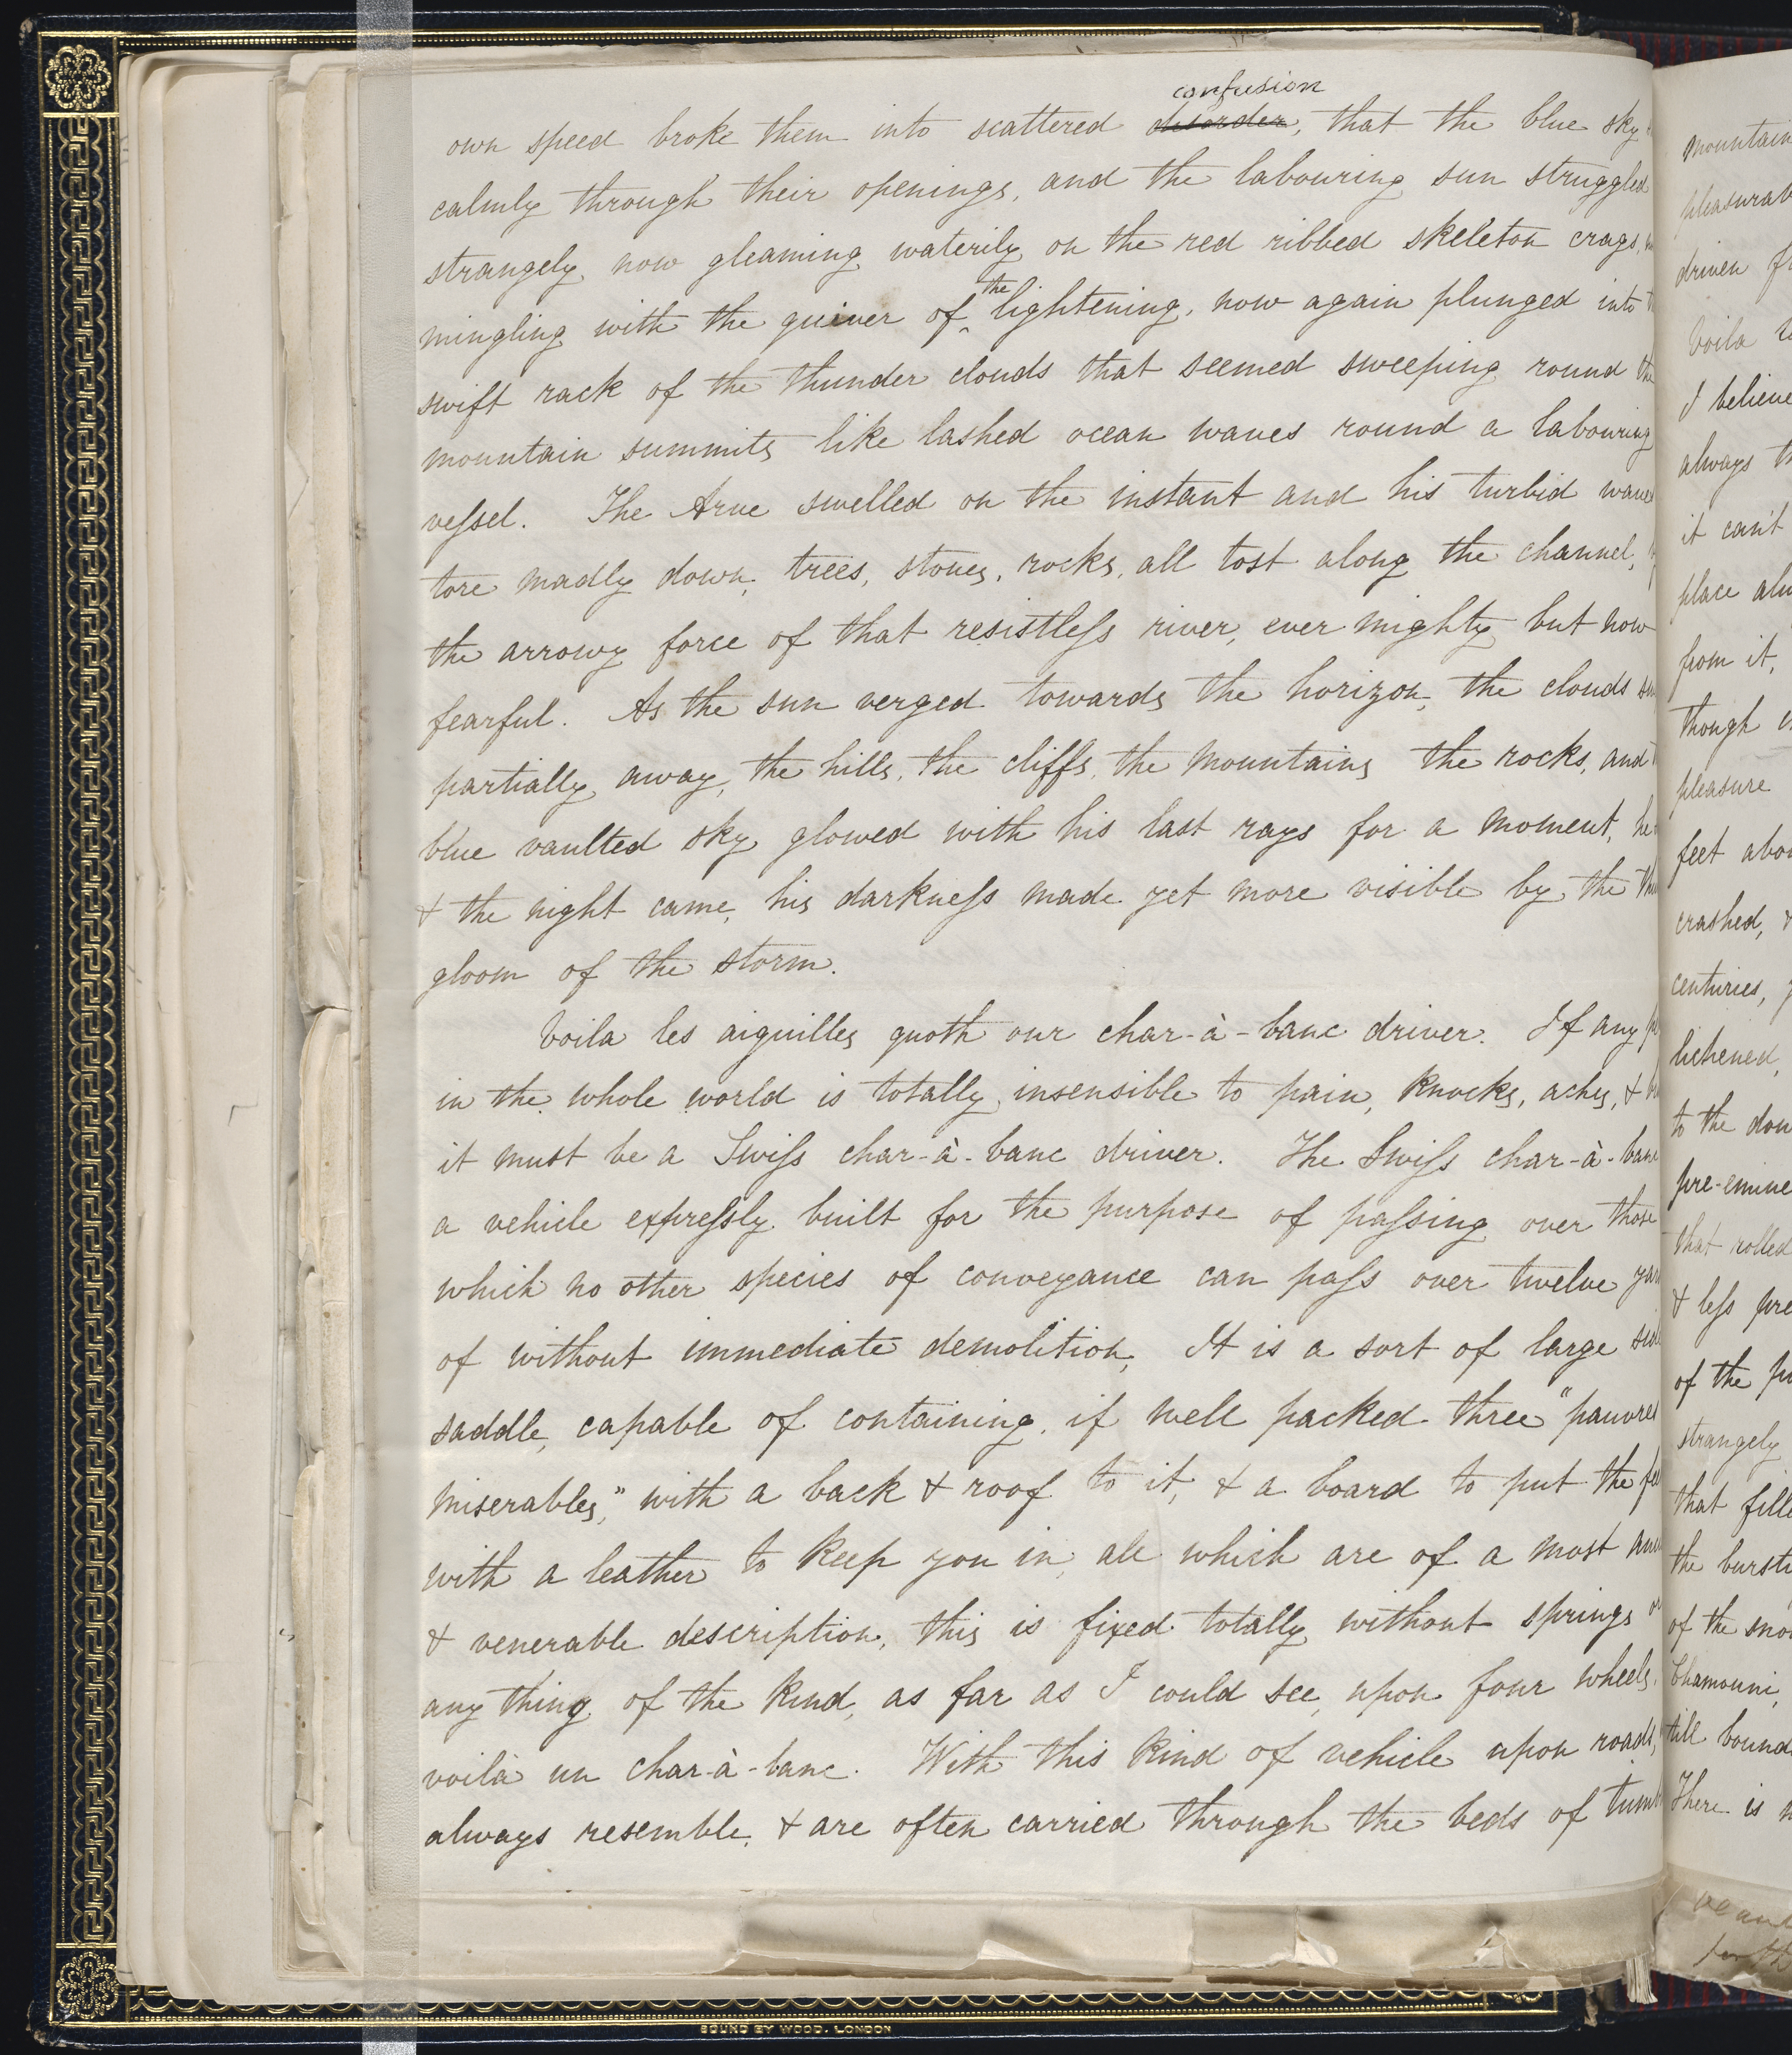 own speed broke them into scattered disorder confusion, that the blue sky
calmly through their openings, and the labouring sun struggled
strangely now gleaming waterily on the red ribbed skeleton crags,
mingling with the quiver of the lightening, now again plunged into
swift rack of the thunder clouds that seemed sweeping round the
mountain summits like lashed ocean waves round a labouring
vessel. The Arve swelled on the instant and his turbid waves
tore madly down, trees, stones, rocks, all tost along the channel,
the arrowy force of that resistless river, ever mighty but now
fearful. As the sun verged towards the horizon, the clouds
partially away, the hills, the cliffs, the mountains the rocks, and
blue vaulted sky glowed with his last rays for a moment, he
& the night came, his darkness made yet more visible by the
gloom of the storm.
Voila les aiguilles quoth our char-à-banc driver. If any
in the whole world is totally insensible to pain, knocks, aches, &
it must be a Swiss char-à-banc driver. The Swiss char-à-banc
a vehicle expressly built for the purpose of passing over those
which no other species of conveyance can pass over twelve
of without immediate demolition. It is a sort of large
saddle, capable of containing, if well packed three "pauvres
miserables," with a back & roof to it, & a board to put the
with a leather to keep you in, all which are of a most
& venerable description, this is fixed totally without springs or
any thing of the kind, as far as I could see, upon four wheels,
voilà un char-à-banc. With this kind of vehicle upon roads,
always resemble, & are often carried through the beds of
mountain
driven
Voila
I believe
always
it can't
place
from it,
though
pleasure
feet
crashed,
centuries,
lichened,
to the
that rolled
& less
of the
strangely
that
the
of the
Chamouni,
till
There is
BOUND BY WOOD. LONDON